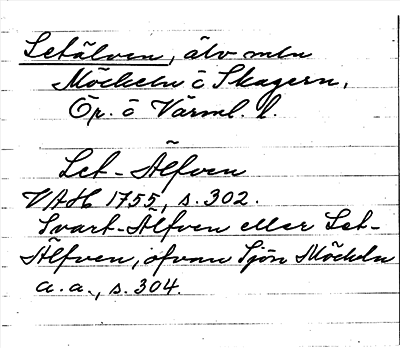 Letälven, älv mln
Möckeln o Skagern,
Ör. o Värml. l.
Let-Älfven
VAH 1755, s. 302.
Svart-Älfven eller Let-
Älfven, ofvan Sjön Möckeln
a.a., s. 304.